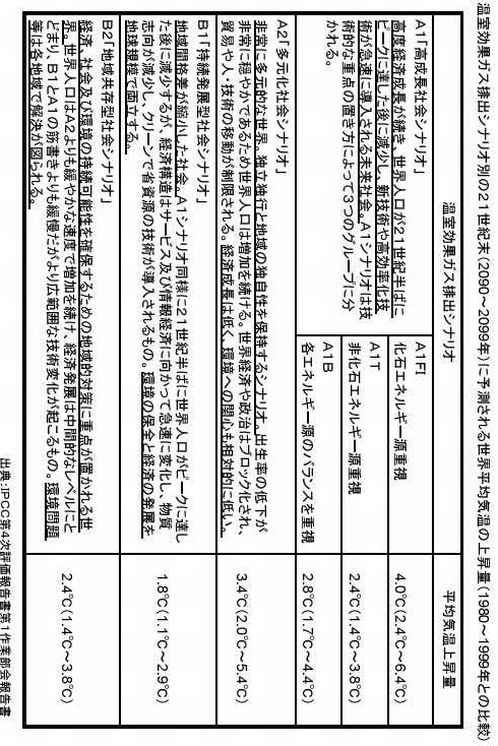 温室効果ガス排出シナリオ別の21世紀末(2090~2099年)に予測される世界平均気温の上昇量(1980~1999年との比較)
温室効果ガス排出シナリオ
平均気温上昇量
A1「高成長社会シナリオ」
高度経済成長が続き、世界人口が21世紀半ばに
ピークに達した後に減少し、新技術や高効率化技
術が急速に導入される未来社会。A1シナリオは技
術的な重点の置き方によって3つのグループに分
かれる。
A1FI
化石エネルギー源重視
4.0℃(2.4℃~6.4℃)
A1T
非化石エネルギー源重視
2.4℃(1.4℃~3.8℃)
A1B
各エネルギー源のバランスを重視
2.8℃(1.7℃~4.4℃)
A2「多元化社会シナリオ」
非常に多元的な世界。独立独行と地域の独自性を保持するシナリオ。出生率の低下が
非常に穏やかであるため世界人口は増加を続ける。世界経済や政治はブロック化され、
貿易や人・技術の移動が制限される。経済成長は低く、環境への関心も相対的に低い。
3.4℃(2.0℃~5.4℃)
B1「持続発展型社会シナリオ」
地域間格差が縮小した社会。A1シナリオ同様に21世紀半ばに世界人口がピークに達し
た後に減少するが、経済構造はサービス及び情報経済に向かって急速に変化し、物質
志向が減少し、クリーンで省資源の技術が導入されるもの。環境の保全と経済の発展を
地球規模で両立する。
1.8℃(1.1℃~2.9℃)
B2「地域共存型社会シナリオ」
経済、社会及び環境の持続可能性を確保するための地域的対策に重点が置かれる世
界。世界人口はA2よりも緩やかな速度で増加を続け、経済発展は中間的なレベルにと
どまり、B1とA1の筋書きよりも緩慢だがより広範囲な技術変化が起こるもの。環境問題
等は各地域で解決が図られる。
2.4℃(1.4℃~3.8℃)
出典:IPCC第4次評価報告書第1作業部会報告書